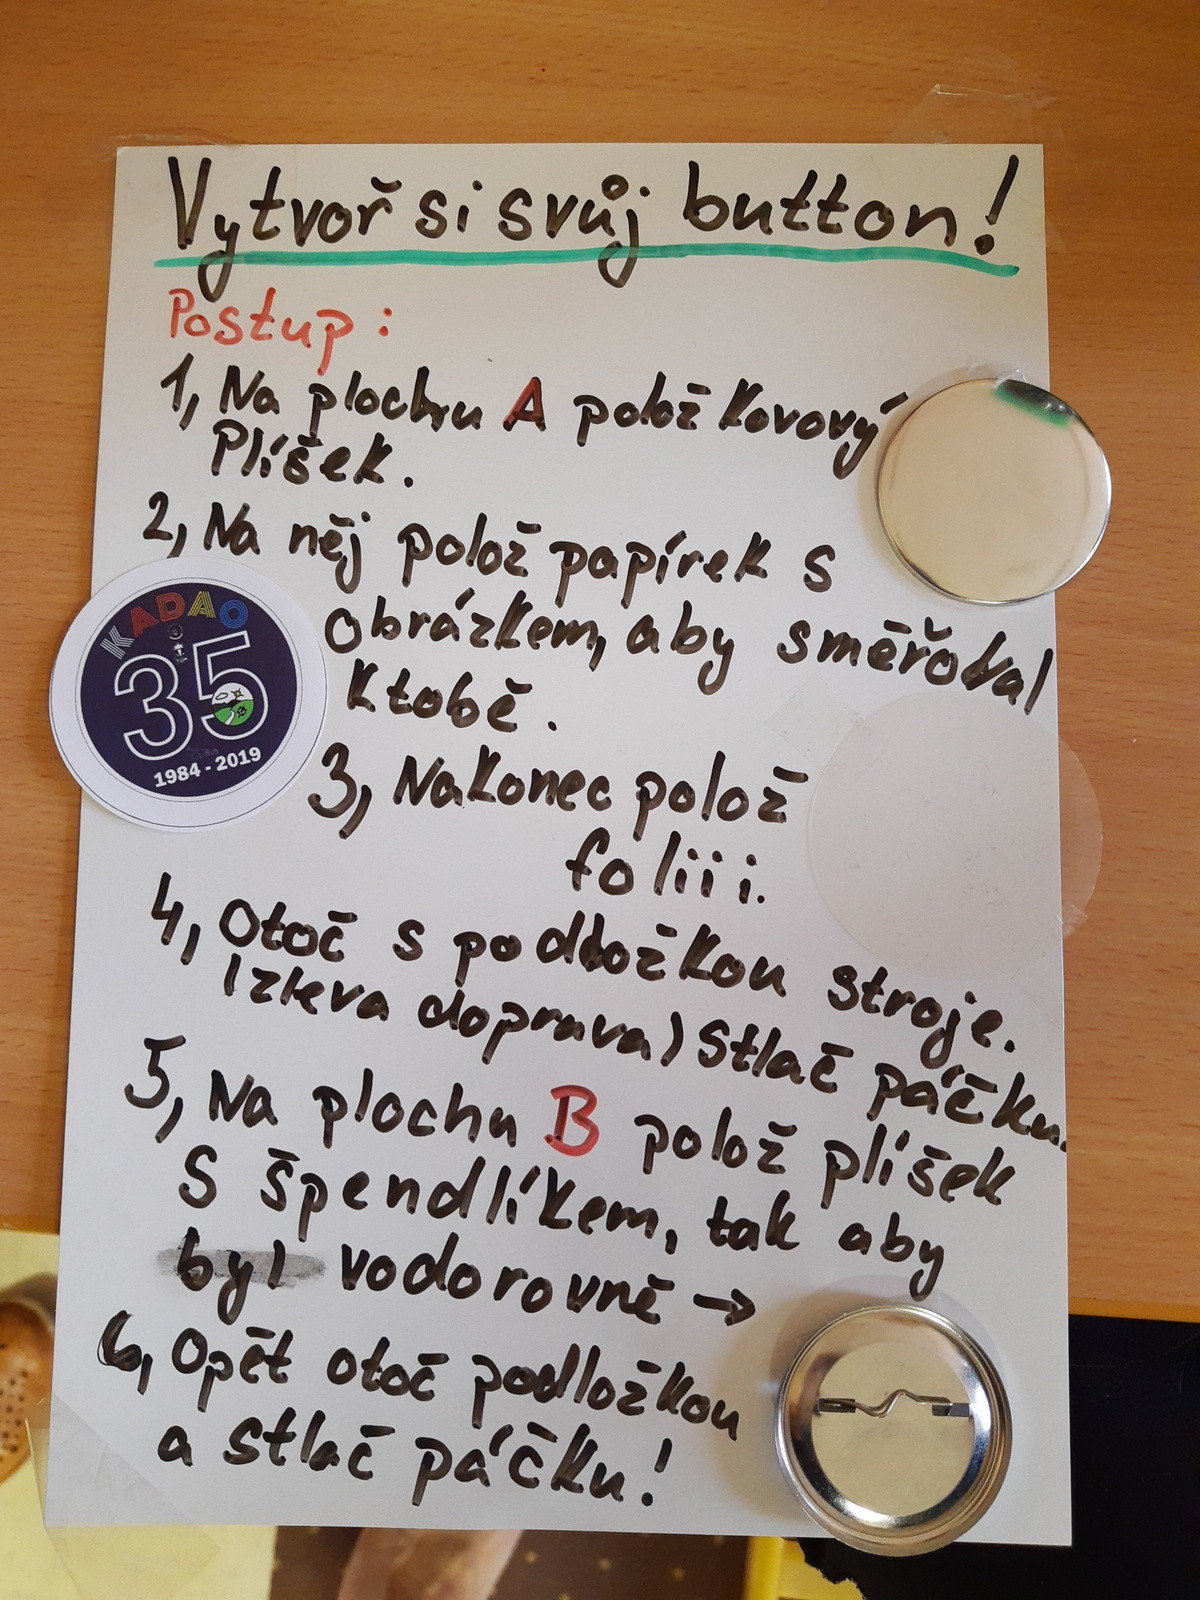 Vytvoř si svůj button!
Postup:
1, Na plochu A polož kovový
Plíšek.
2, Na něj polož papírek s
obrázkem, aby směřoval
K tobě.
KADAO
35
1984 - 2019
3, Nakonec polož
foliii.
4, Otoč s podložkou stroje.
(zleva doprava) Stlač páčku.
5, Na plochu B polož plíšek
S špendlíkem, tak aby
byl vodorovně →
6, Opět otoč podložkou
a stlač páčku!